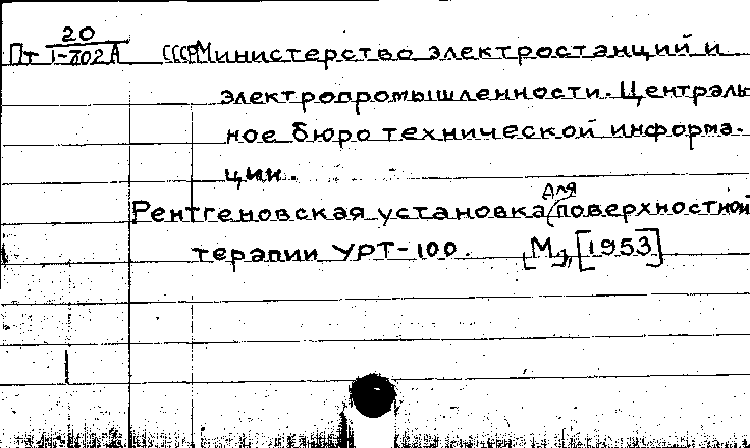 20
Пт I-702А СССР Министерство электростанций и
электропромышленности. Централь
ное бюро технической информа-
ции.
для
Рентгеновская установка поверхностной
терапии УРТ-100. [М.], [1953]